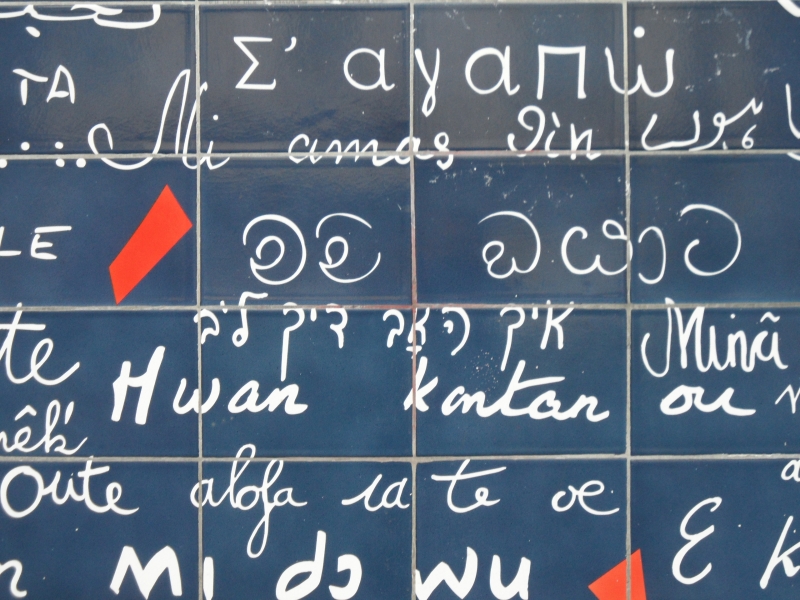 TA Σ' αγαπώ
Mi amas Vin
LE
איך האב דיך ליב
te Mwan kontan ou Minã
Oute alofa ia te oe
Mi dɔ wu